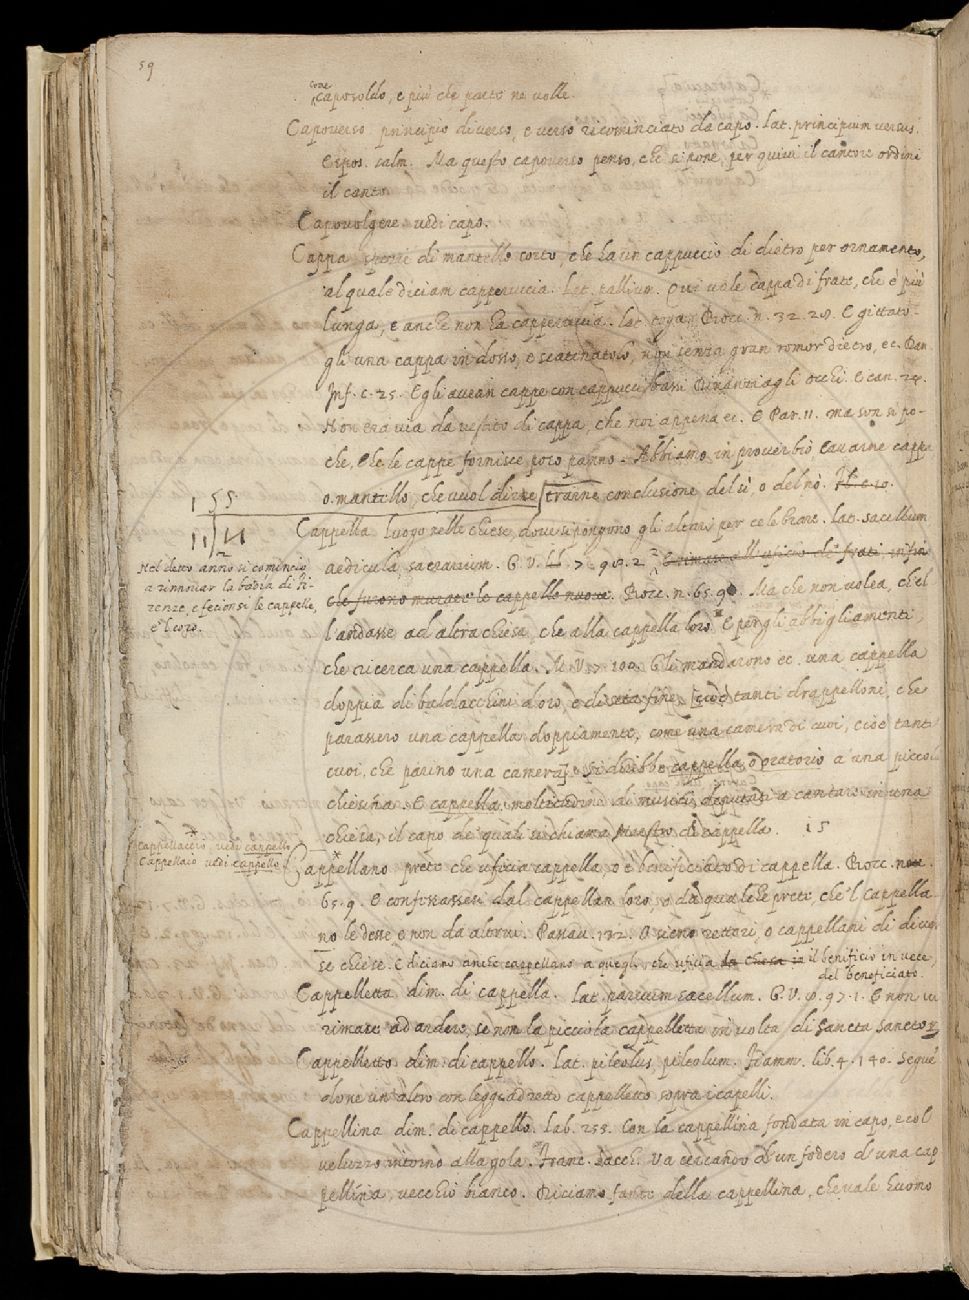 59
come
caposoldo, e più che parte ne volle.
Capoverso principio di verso, e verso ricominciato da capo. Lat. principium versus.
Espos. salm. Ma questo capoverso penso, che si pone, per quivi il cantore ordini
il canto.
Capovolgere vedi capo.
Cappa spezie di mantello corto, che ha un cappuccio di dietro per ornamento,
al quale diciam capperuccia. Lat. pallium. Qui vale cappa di frate, che è più
lunga, e anche non ha capperuccia. lat. toga. Bocc. n. 32. 28. E gittato-
gli una cappa in dosso, e scatenatolo, non senza gran romor dietro, ec. Dan.
Inf. c. 25. Egli avean cappe con cappucci bassi Dinanzi agli occhi. E can. 24.
Non era via da vestito di cappa, che noi appena ec. E Par. 11. ma son sì po-
che, Che le cappe fornisce poco panno. Abbiamo in proverbio Cavarne cappa
o mantello, che vuol dire trarne conclusione del sì, o del nò.
1 55
11 41
2
Cappella luogo nelle chiese, dove si pongono gli altari per celebrare. Lat. sacellum
aedicula, sacrarium. G. V. 7. 98. 2. E rimase all'uficio di frati infin
Nel detto anno si cominciò
a rinnovar la badia di Fi-
renze, e fecionsi le cappelle,
e 'l coro.
che furono murate le cappelle nuove. Bocc. n. 65. 9. Ma che non volea, ch'el
l'andasse ad altra chiesa, che alla cappella loro. E per gli abbigliamenti,
che ricerca una cappella. M. V. 7. 100. Gli mandarono ec. una cappella
doppia di baldacchini d'oro, e di seta fine, cioè tanti drappelloni, che
parassero una cappella doppiamente, come una camera di cuoi, cioè tanti
cuoi, che parino una camera e si direbbe cappella, o oratorio a una piccol
chiesina. E cappella, moltitudine di musici, deputati a cantare in una
chiesa, il capo de' quali si chiama Maestro di cappella. 15
Cappellaccio, vedi cappello
Cappellaio vedi cappello
Cappellano prete che uficia cappella, o è benificiato di cappella. Bocc. nov.
65. 9. E confessassesi dal cappellan loro, o da quale che prete, che 'l cappella-
no le desse, e non da altrui. Passav. 132. O sieno rettori, o cappellani di diver-
se chiese. E diciamo anche cappellano a quegli, che uficia la chiesa in il benificio in vece
del beneficiato.
Cappelletta dim. di cappella. Lat. parvum sacellum. G. V. 9. 97. 1. E non vi
rimase ad ardere, se non la piccola cappelletta in volta di Sancta Sanctor.
Cappelletto dim. di cappello. Lat. pileolus, pileolum. Fiamm. lib. 4. 140. Segue
done un altro con leggiadretto cappelletto sopra i capelli.
Cappellina dim. di cappello. Lab. 255. Con la cappellina fondata in capo, e col
velluzzo intorno alla gola. Franc. Sacch. Va cercando d'un fodero d'una cap
pellina, vecchio bianco. Diciamo fante della cappellina, che vale huomo